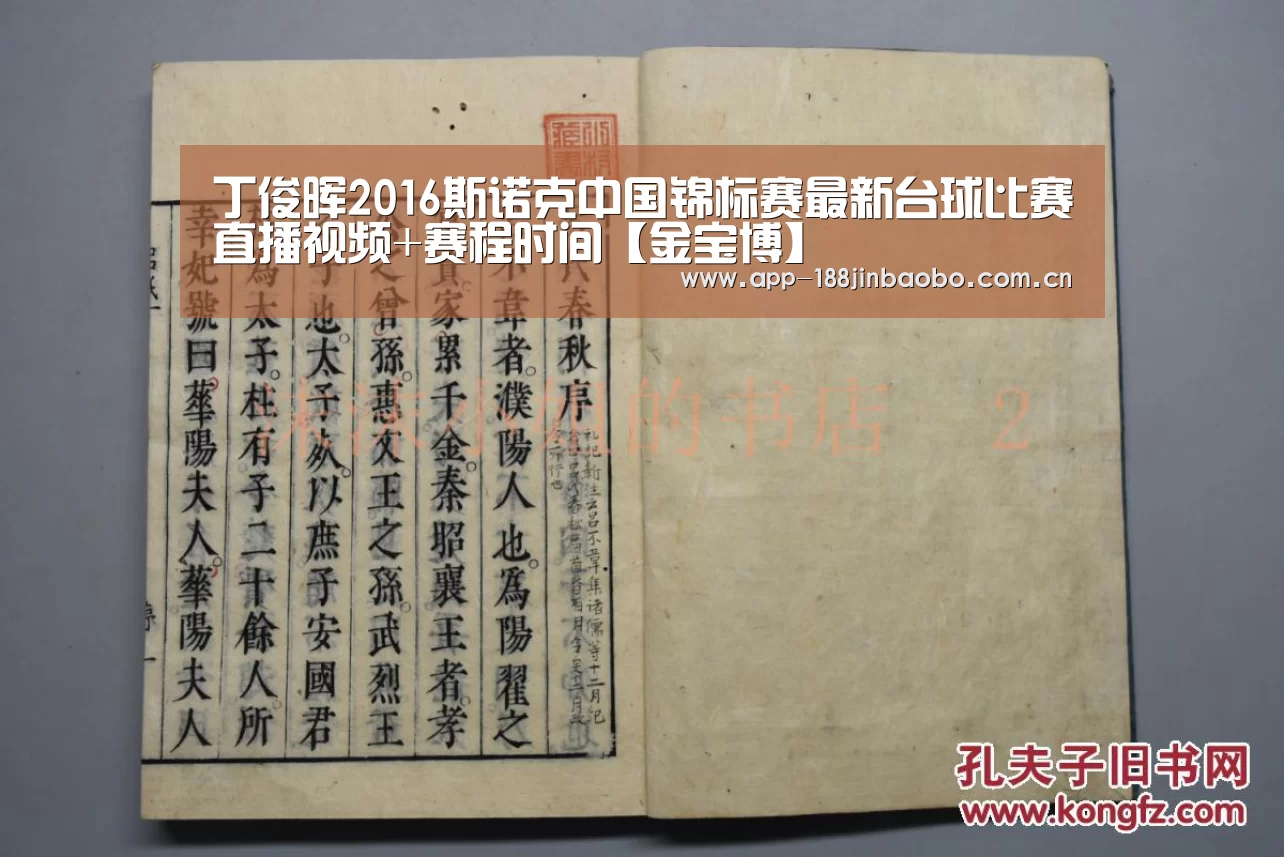 丁俊晖2016斯诺克中国锦标赛最新台球比赛
直播视频+赛程时间【金宝博】
www.app-188jinbaobo.com.cn
春秋序
不韋者。濮陽人也。爲陽翟之
賈家累千金。秦昭襄王者。孝
之曾孫。惠文王之孫。武烈王
子也。太子死。以庶子安國君
爲太子。柱有子二十餘人。所
幸妃號曰。華陽夫人。華陽夫人
序 一
小姐的书店 2
孔夫子旧书网
www.kongfz.com